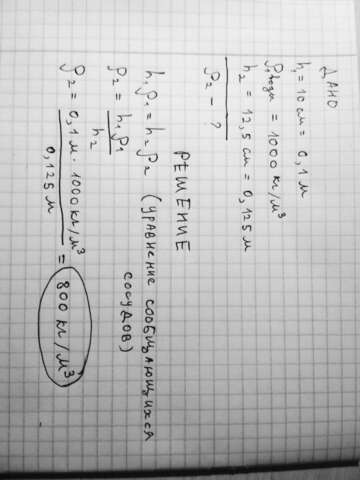 ДАНО
h₁ = 10 см = 0,1 м
ρ₁воды = 1000 кг/м³
h₂ = 12,5 см = 0,125 м
ρ₂ - ?
РЕШЕНИЕ
h₁ρ₁ = h₂ρ₂ (уравнение сообщающихся
сосудов)
ρ₂ = h₁ρ₁
h₂
ρ₂ = 0,1 м · 1000 кг/м³ = 800 кг/м³
0,125 м